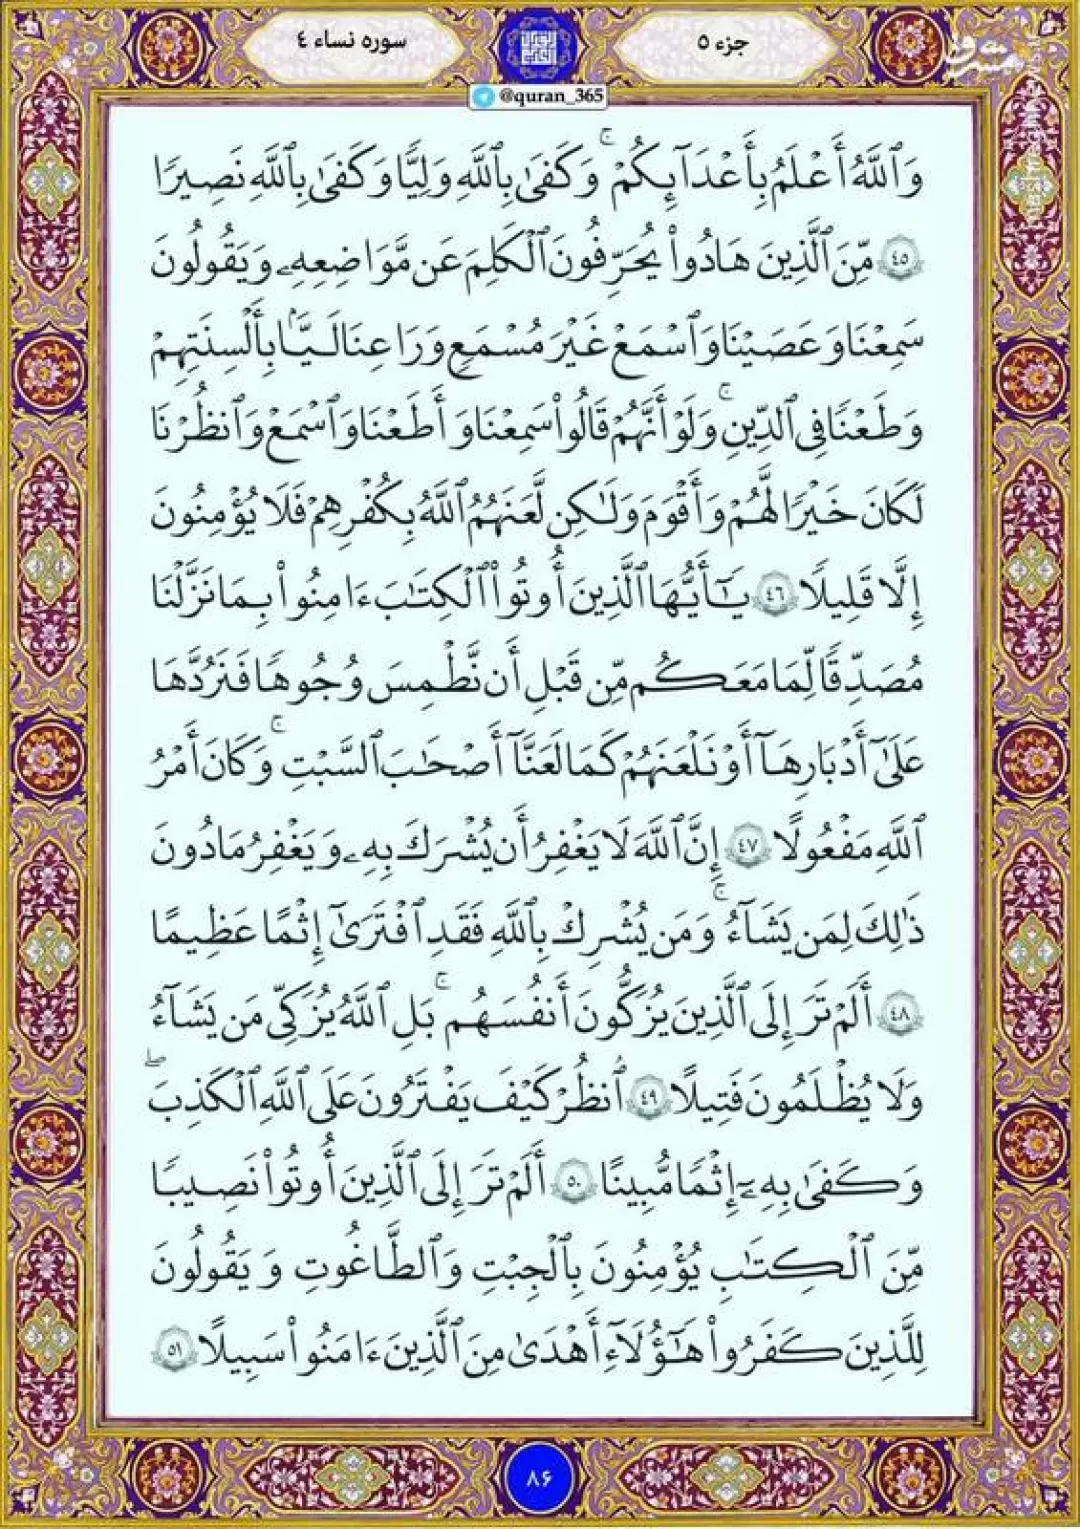 جزء ٥
سوره نساء ٤
@quran_365
وَٱللَّهُ أَعْلَمُ بِأَعْدَآئِكُمْ ۚ وَكَفَىٰ بِٱللَّهِ وَلِيًّا وَكَفَىٰ بِٱللَّهِ نَصِيرًا
٤٥ مِّنَ ٱلَّذِينَ هَادُوا۟ يُحَرِّفُونَ ٱلْكَلِمَ عَن مَّوَاضِعِهِۦ وَيَقُولُونَ
سَمِعْنَا وَعَصَيْنَا وَٱسْمَعْ غَيْرَ مُسْمَعٍ وَرَاعِنَا لَيًّۢا بِأَلْسِنَتِهِمْ
وَطَعْنًا فِى ٱلدِّينِ ۚ وَلَوْ أَنَّهُمْ قَالُوا۟ سَمِعْنَا وَأَطَعْنَا وَٱسْمَعْ وَٱنظُرْنَا
لَكَانَ خَيْرًا لَّهُمْ وَأَقْوَمَ وَلَـٰكِن لَّعَنَهُمُ ٱللَّهُ بِكُفْرِهِمْ فَلَا يُؤْمِنُونَ
إِلَّا قَلِيلًا ٤٦ يَـٰٓأَيُّهَا ٱلَّذِينَ أُوتُوا۟ ٱلْكِتَـٰبَ ءَامِنُوا۟ بِمَا نَزَّلْنَا
مُصَدِّقًا لِّمَا مَعَكُم مِّن قَبْلِ أَن نَّطْمِسَ وُجُوهًا فَنَرُدَّهَا
عَلَىٰٓ أَدْبَارِهَآ أَوْ نَلْعَنَهُمْ كَمَا لَعَنَّآ أَصْحَـٰبَ ٱلسَّبْتِ ۚ وَكَانَ أَمْرُ
ٱللَّهِ مَفْعُولًا ٤٧ إِنَّ ٱللَّهَ لَا يَغْفِرُ أَن يُشْرَكَ بِهِۦ وَيَغْفِرُ مَا دُونَ
ذَٰلِكَ لِمَن يَشَآءُ ۚ وَمَن يُشْرِكْ بِٱللَّهِ فَقَدِ ٱفْتَرَىٰٓ إِثْمًا عَظِيمًا
٤٨ أَلَمْ تَرَ إِلَى ٱلَّذِينَ يُزَكُّونَ أَنفُسَهُم ۚ بَلِ ٱللَّهُ يُزَكِّى مَن يَشَآءُ
وَلَا يُظْلَمُونَ فَتِيلًا ٤٩ ٱنظُرْ كَيْفَ يَفْتَرُونَ عَلَى ٱللَّهِ ٱلْكَذِبَ ۖ
وَكَفَىٰ بِهِۦٓ إِثْمًا مُّبِينًا ٥٠ أَلَمْ تَرَ إِلَى ٱلَّذِينَ أُوتُوا۟ نَصِيبًا
مِّنَ ٱلْكِتَـٰبِ يُؤْمِنُونَ بِٱلْجِبْتِ وَٱلطَّـٰغُوتِ وَيَقُولُونَ
لِلَّذِينَ كَفَرُوا۟ هَـٰٓؤُلَآءِ أَهْدَىٰ مِنَ ٱلَّذِينَ ءَامَنُوا۟ سَبِيلًا ٥١
٨٦